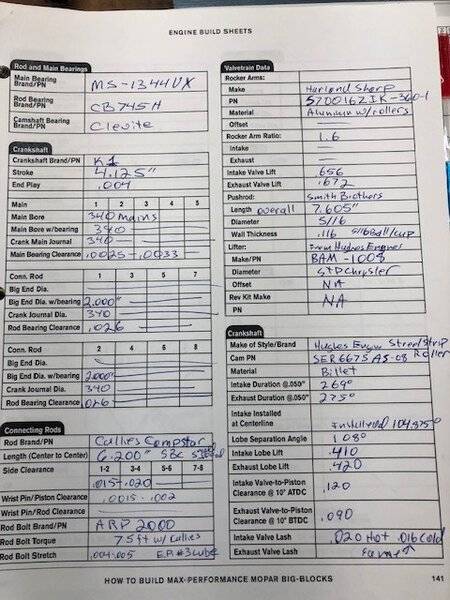 ENGINE BUILD SHEETS
Rod and Main Bearings
Main Bearing Brand/PN MS-1344VX
Rod Bearing Brand/PN CB745H
Camshaft Bearing Brand/PN Clevite
Crankshaft
Crankshaft Brand/PN K1
Stroke 4.125"
End Play .004
Main 1 2 3 4 5
Main Bore 340 mains
Main Bore w/bearing 340
Crank Main Journal 340
Main Bearing Clearance .0025 - .0033
Conn. Rod 1 3 5 7
Big End Dia.
Big End Dia. w/bearing 2.000"
Crank Journal Dia. 340
Rod Bearing Clearance .026
Conn. Rod 2 4 6 8
Big End Dia.
Big End Dia. w/bearing 2.000"
Crank Journal Dia. 340
Rod Bearing Clearance 026
Connecting Rods
Rod Brand/PN Callies Compstar
Length (Center to Center) 6.200" SBC
Side Clearance 1-2 3-4 5-6 7-8
.015-.020
Wrist Pin/Piston Clearance .0015 - .002
Wrist Pin/Rod Clearance
Rod Bolt Brand/PN ARP 2000
Rod Bolt Torque 75 ft w/Callies
Rod Bolt Stretch .004-.005 E.P. #3 Lube
Valvetrain Data
Rocker Arms:
Make Harland Sharp
PN S70016ZIK-360-1
Material Aluminum w/rollers
Offset
Rocker Arm Ratio: 1.6
Intake
Exhaust
Intake Valve Lift .656
Exhaust Valve Lift .672
Pushrod: Smith Brothers
Length overall 7.605"
Diameter 5/16
Wall Thickness .116 5/16 Ball/cup
Lifter: From Hughes Engines
Make/PN BAM-1008
Diameter STD Chrysler
Offset NA
Rev Kit Make NA
PN
Crankshaft
Make of Style/Brand Hughes Engin Street Strip
Cam PN SER6675AS-08 Roller
Material Billet
Intake Duration @.050" 269°
Exhaust Duration @.050" 275°
Intake Installed at Centerline Installed 104.875°
Lobe Separation Angle 108°
Intake Lobe Lift .410
Exhaust Lobe Lift .420
Intake Valve-to-Piston Clearance @ 10° ATDC .120
Exhaust Valve-to-Piston Clearance @ 10° BTDC .090
Intake Valve Lash .020 Hot .016 Cold
Exhaust Valve Lash Same
HOW TO BUILD MAX-PERFORMANCE MOPAR BIG-BLOCKS
141